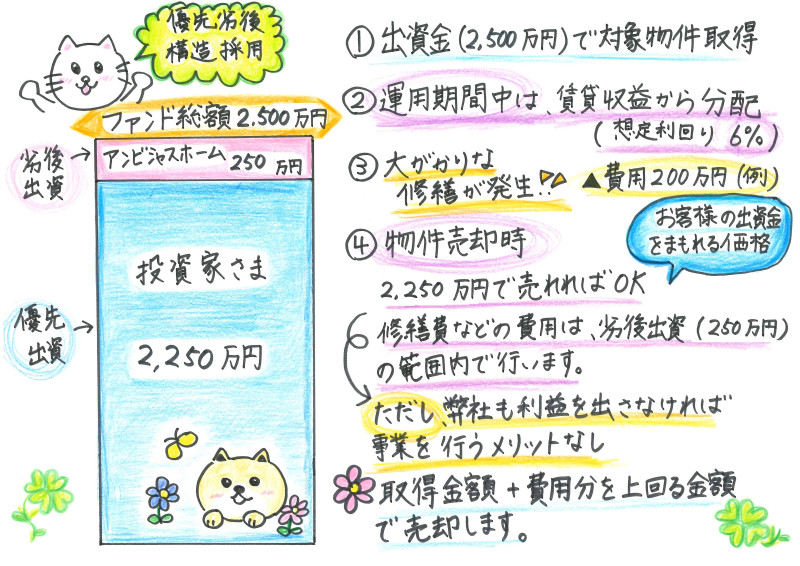 優先劣後
構造採用
ファンド総額2,500万円
劣後
出資
アンビシャスホーム 250万円
投資家さま
2,250万円
優先
出資
①出資金(2,500万円)で対象物件取得
②運用期間中は、賃貸収益から分配
(想定利回り 6%)
③大がかりな
修繕が発生!!
▲費用200万円(例)
お客様の出資金
をまもれる価格
④物件売却時
2,250万円で売れればOK
修繕費などの費用は、劣後出資(250万円)
の範囲内で行います。
ただし、弊社も利益を出さなければ
事業を行うメリットなし
取得金額+費用分を上回る金額
で売却します。